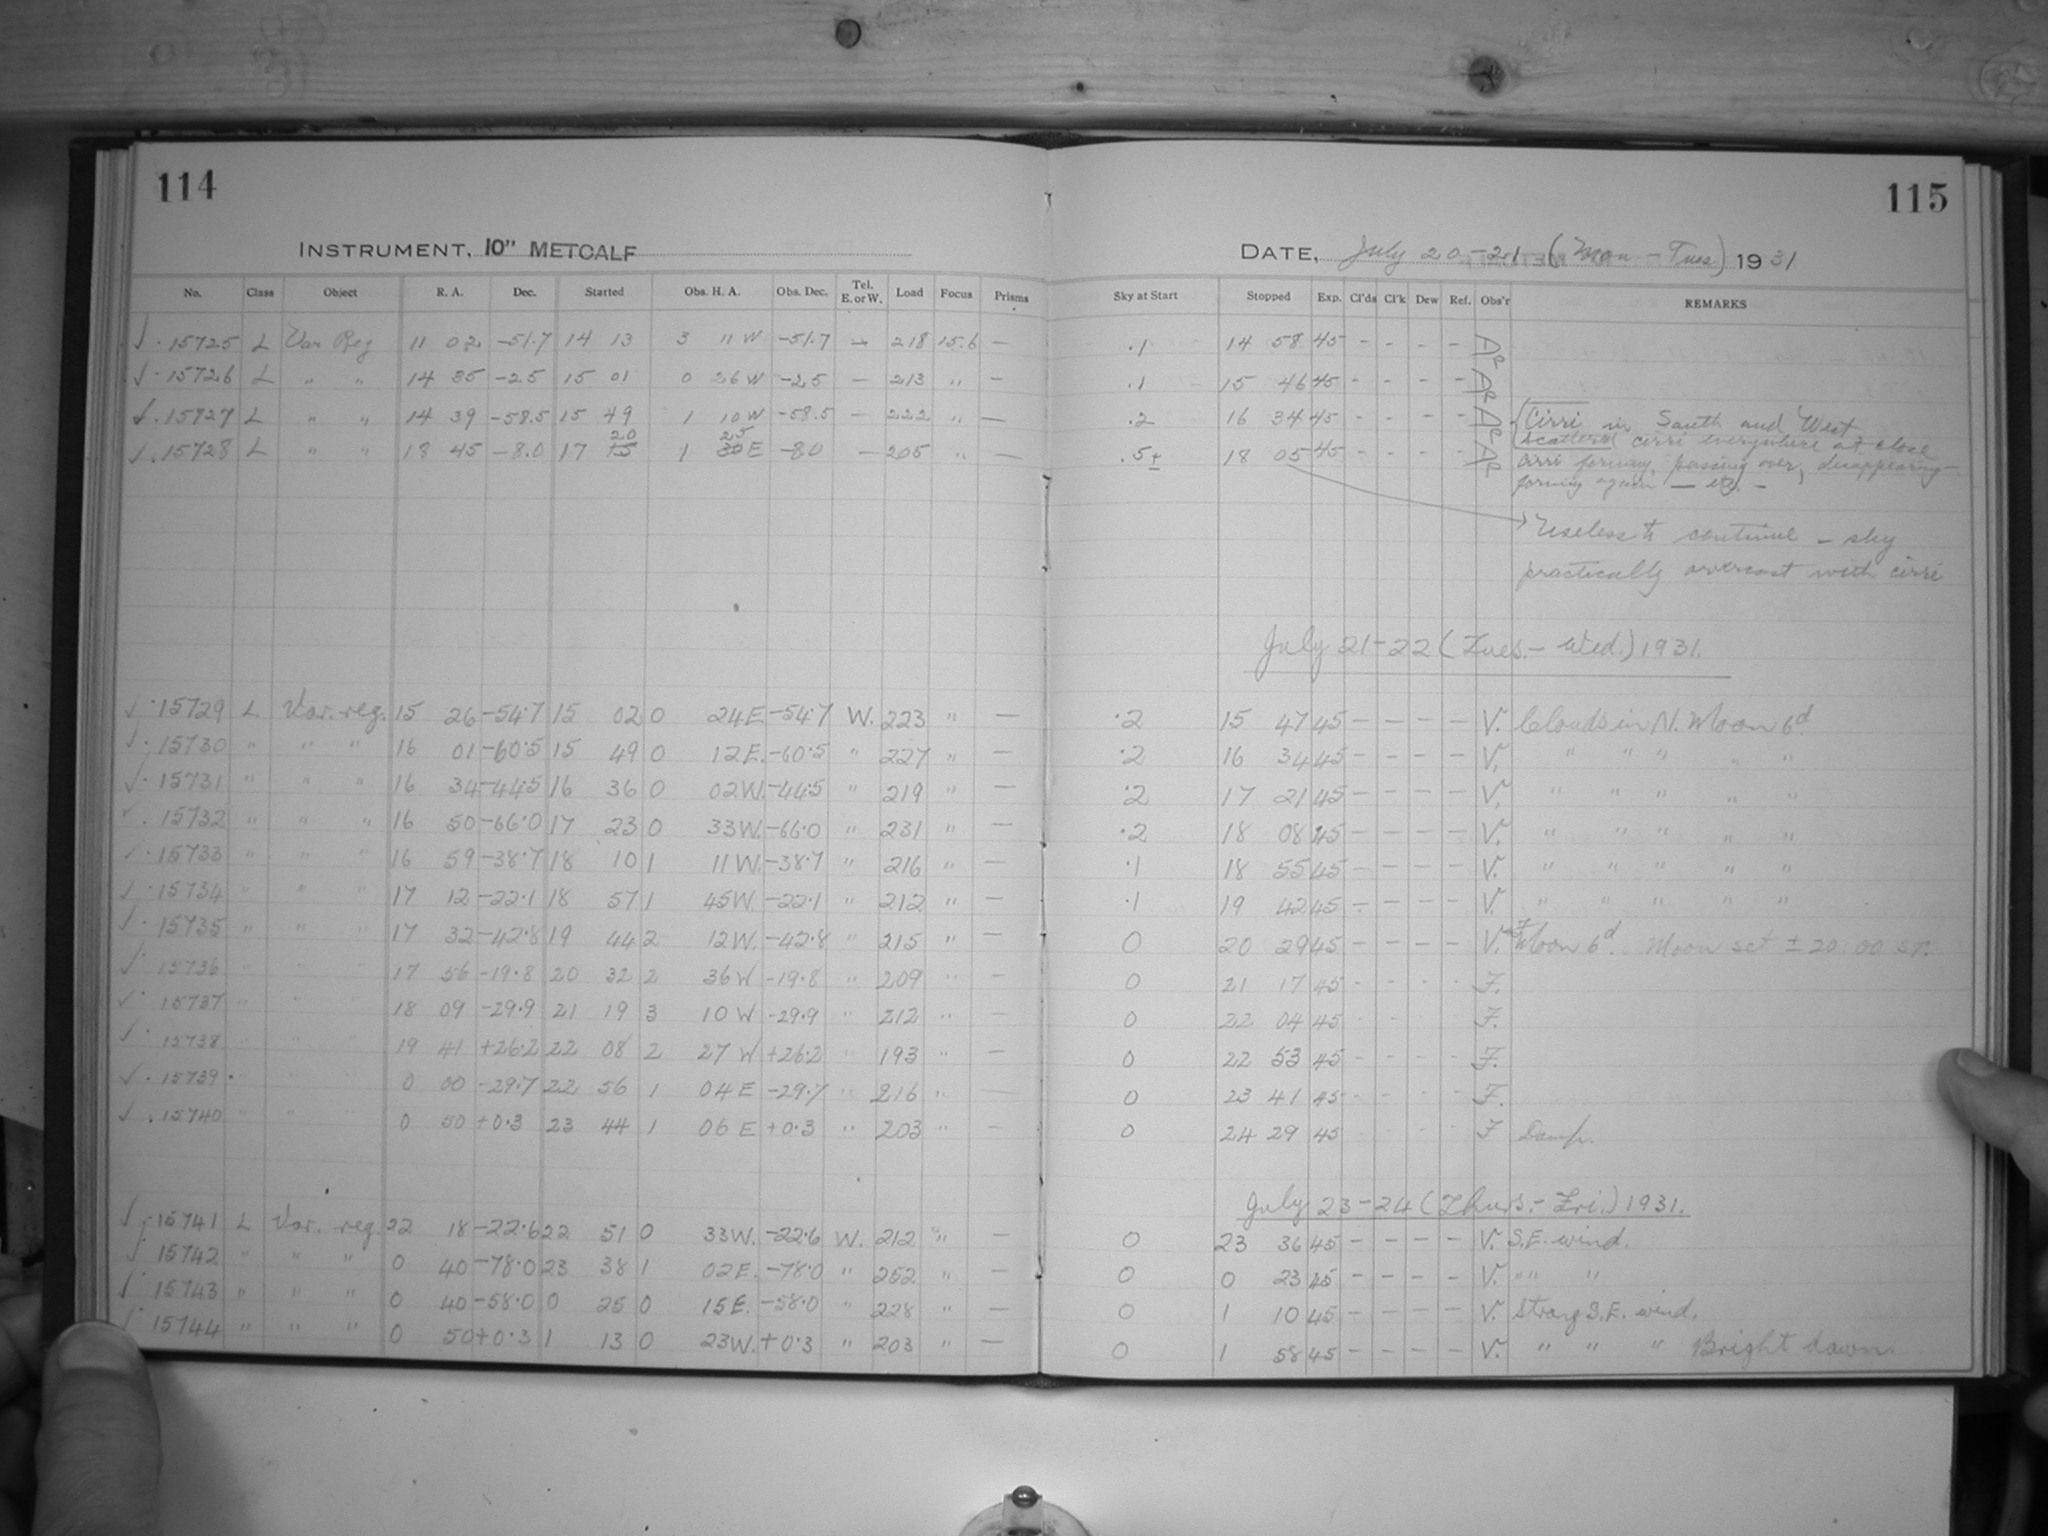 114
115
INSTRUMENT, 10" METCALF
DATE, July 20-21 (Mon - Tues) 1931
No. Class Object R. A. Dec. Started Obs. H. A. Obs. Dec. Tel. E. or W. Load Focus Prisms Sky at Start Stopped Exp. Cl'ds Cl'k Dew Ref. Obs'r REMARKS
√ · 15725 L Var Reg 11 02 -51.7 14 13 3 11 W -51.7 - 218 15.6 - .1 14 58 45 - - - - AR
√ · 15726 L " " 14 35 -2.5 15 01 0 26 W -2.5 - 213 " - .1 15 46 45 - - - - AR
√ · 15727 L " " 14 39 -58.5 15 49 1 10 W -58.5 - 222 " - .2 16 34 45 - - - - AR Cirri in South and West
scattered cirri everywhere at close
√ · 15728 L " " 18 45 -8.0 17 15 20 1 30 25 E -8.0 - 205 " - .5± 18 05 45 - - - - AR cirri forming, passing over, disappearing -
forming again - etc. -
Useless to continue - sky
practically overcast with cirri
July 21-22 (Tues. - Wed.) 1931.
√ · 15729 L Var. reg. 15 26 -54.7 15 02 0 24 E -54.7 W. 223 " - .2 15 47 45 - - - - V. Clouds in N. Moon 6d.
√ · 15730 " " " 16 01 -60.5 15 49 0 12 E. -60.5 " 227 " - .2 16 34 45 - - - - V. " " " " "
√ · 15731 " " " 16 34 -44.5 16 36 0 02 W. -44.5 " 219 " - .2 17 21 45 - - - - V. " " " " "
√ · 15732 " " " 16 50 -66.0 17 23 0 33 W. -66.0 " 231 " - .2 18 08 45 - - - - V. " " " " "
√ · 15733 " " " 16 59 -38.7 18 10 1 11 W. -38.7 " 216 " - .1 18 55 45 - - - - V. " " " " "
√ · 15734 " " " 17 12 -22.1 18 57 1 45 W. -22.1 " 212 " - .1 19 42 45 - - - - V. " " " " "
√ · 15735 " " " 17 32 -42.8 19 44 2 12 W. -42.8 " 215 " - 0 20 29 45 - - - - V. Moon 6d. Moon set ± 20 00 ST.
√ · 15736 " " " 17 56 -19.8 20 32 2 36 W -19.8 " 209 " - 0 21 17 45 - - - - F.
√ · 15737 " " " 18 09 -29.9 21 19 3 10 W -29.9 " 212 " - 0 22 04 45 - - - - F.
√ · 15738 " " " 19 41 +26.2 22 08 2 27 W +26.2 " 193 " - 0 22 53 45 - - - - F.
√ · 15739 · " " " 0 00 -29.7 22 56 1 04 E -29.7 " 216 " - 0 23 41 45 - - - - F.
√ · 15740 " " " 0 50 +0.3 23 44 1 06 E +0.3 " 203 " - 0 24 29 45 - - - - F Damp.
July 23-24 (Thurs. - Fri.) 1931.
√ · 15741 L Var. reg. 22 18 -22.6 22 51 0 33 W. -22.6 W. 212 " - 0 23 36 45 - - - - V. S.E. wind.
√ · 15742 " " " 0 40 -78.0 23 38 1 02 E. -78.0 " 252 " - 0 0 23 45 - - - - V. " " "
√ · 15743 " " " 0 40 -58.0 0 25 0 15 E. -58.0 " 228 " - 0 1 10 45 - - - - V. Strong S.E. wind.
√ · 15744 " " " 0 50 +0.3 1 13 0 23 W. +0.3 " 203 " - 0 1 58 45 - - - - V. " " " Bright dawn.